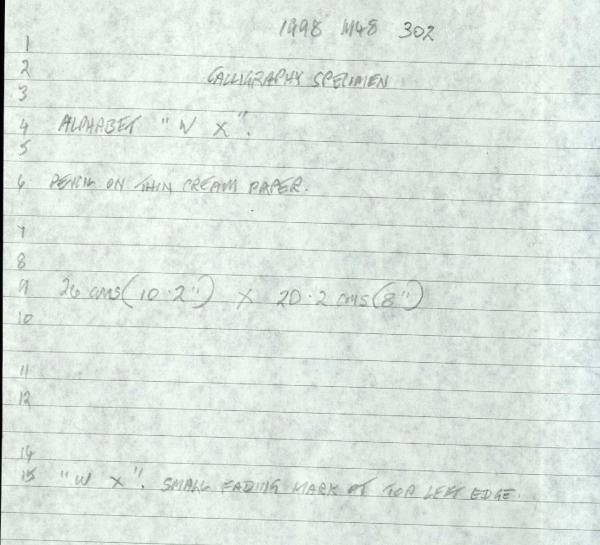 1998 M48 302
1
2 CALLIGRAPHY SPECIMEN
3
4 ALPHABET "W X".
5
6 PENCIL ON THIN CREAM PAPER.
7
8
9 26 cms (10.2") X 20.2 cms (8")
10
11
12
14
15 "W X". SMALL FADING MARK AT TOP LEFT EDGE.